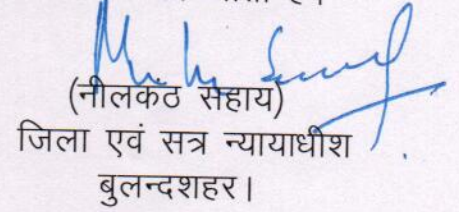 (नीलकंठ सहाय)
जिला एवं सत्र न्यायाधीश
बुलन्दशहर।